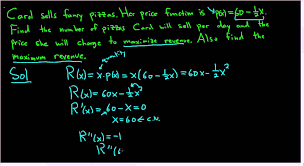 Card sells fancy pizzas. Her price function is p(x) = 60 - ½x.
Find the number of pizzas Card will sell per day and the
price she will change to maximize revenue. Also find the
maximum revenue.
Sol R(x) = x·p(x) = x(60 - ½x) = 60x - ½x²
R(x) = 60x - ½x²
R'(x) = 60 - x = 0
x = 60 ← c.v.
R''(x) = -1
R''(6